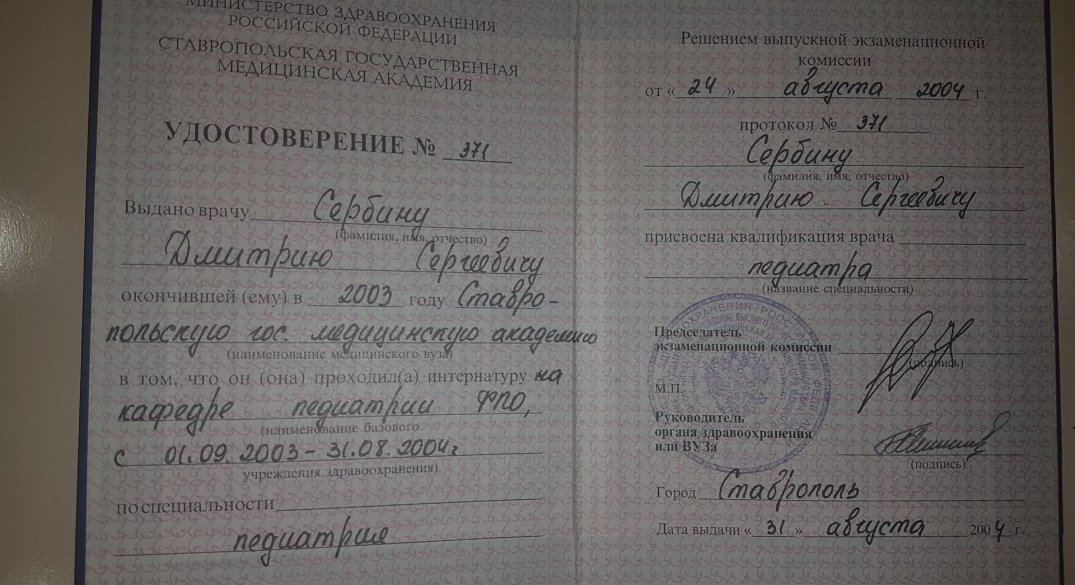 МИНИСТЕРСТВО ЗДРАВООХРАНЕНИЯ
РОССИЙСКОЙ ФЕДЕРАЦИИ
СТАВРОПОЛЬСКАЯ ГОСУДАРСТВЕННАЯ
МЕДИЦИНСКАЯ АКАДЕМИЯ
УДОСТОВЕРЕНИЕ № 371
Выдано врачу Сербину
(фамилия, имя, отчество)
Дмитрию Сергеевичу
окончившей (ему) в 2003 году Ставро-
польскую гос. медицинскую академию
(наименование медицинского вуза)
в том, что он (она) проходил(а) интернатуру на
кафедре педиатрии ФПО,
(наименование базового
с 01.09.2003 - 31.08.2004г
учреждения здравоохранения)
по специальности
педиатрия
Решением выпускной экзаменационной
комиссии
от « 24 » августа 2004 г.
протокол № 371
Сербину
(фамилия, имя, отчество)
Дмитрию Сергеевичу
присвоена квалификация врача
педиатра
(название специальности)
Председатель
экзаменационной комиссии
(подпись)
М.П.
Руководитель
органа здравоохранения
или ВУЗа
(подпись)
Город Ставрополь
Дата выдачи « 31 » августа 2004 г.